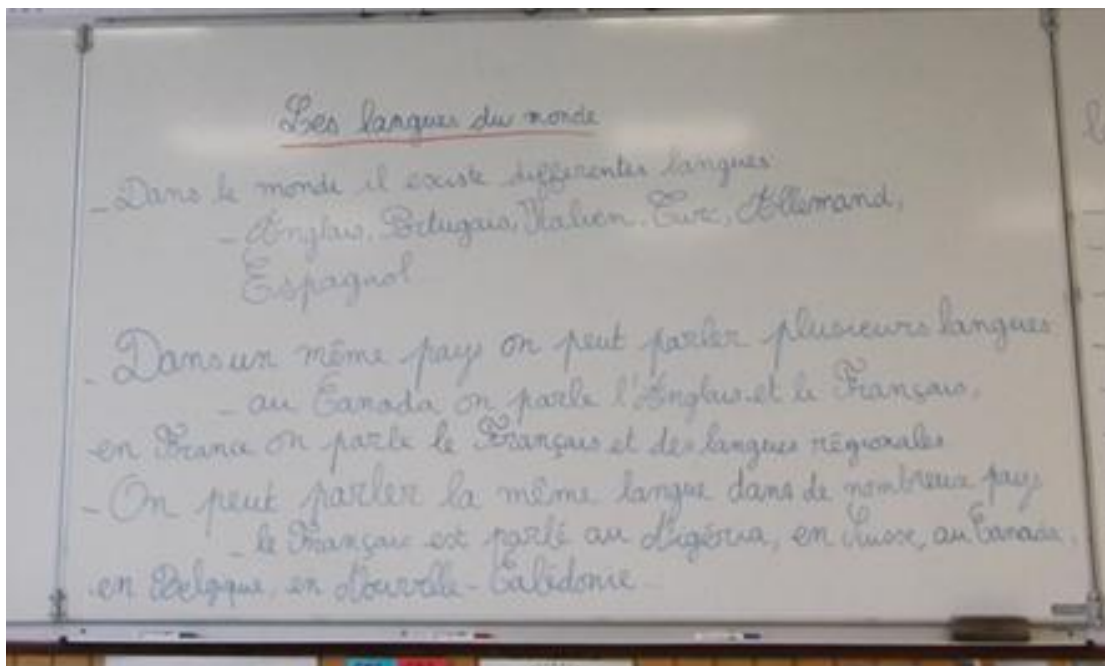 Les langues du monde
- Dans le monde il existe différentes langues
- Anglais, Portugais, Italien, Turc, Allemand,
Espagnol
- Dans un même pays on peut parler plusieurs langues
- au Canada on parle l'Anglais et le Français,
en France on parle le Français et des langues régionales
- On peut parler la même langue dans de nombreux pays
- le Français est parlé au Nigéria, en Suisse, au Canada,
en Belgique, en Nouvelle-Calédonie